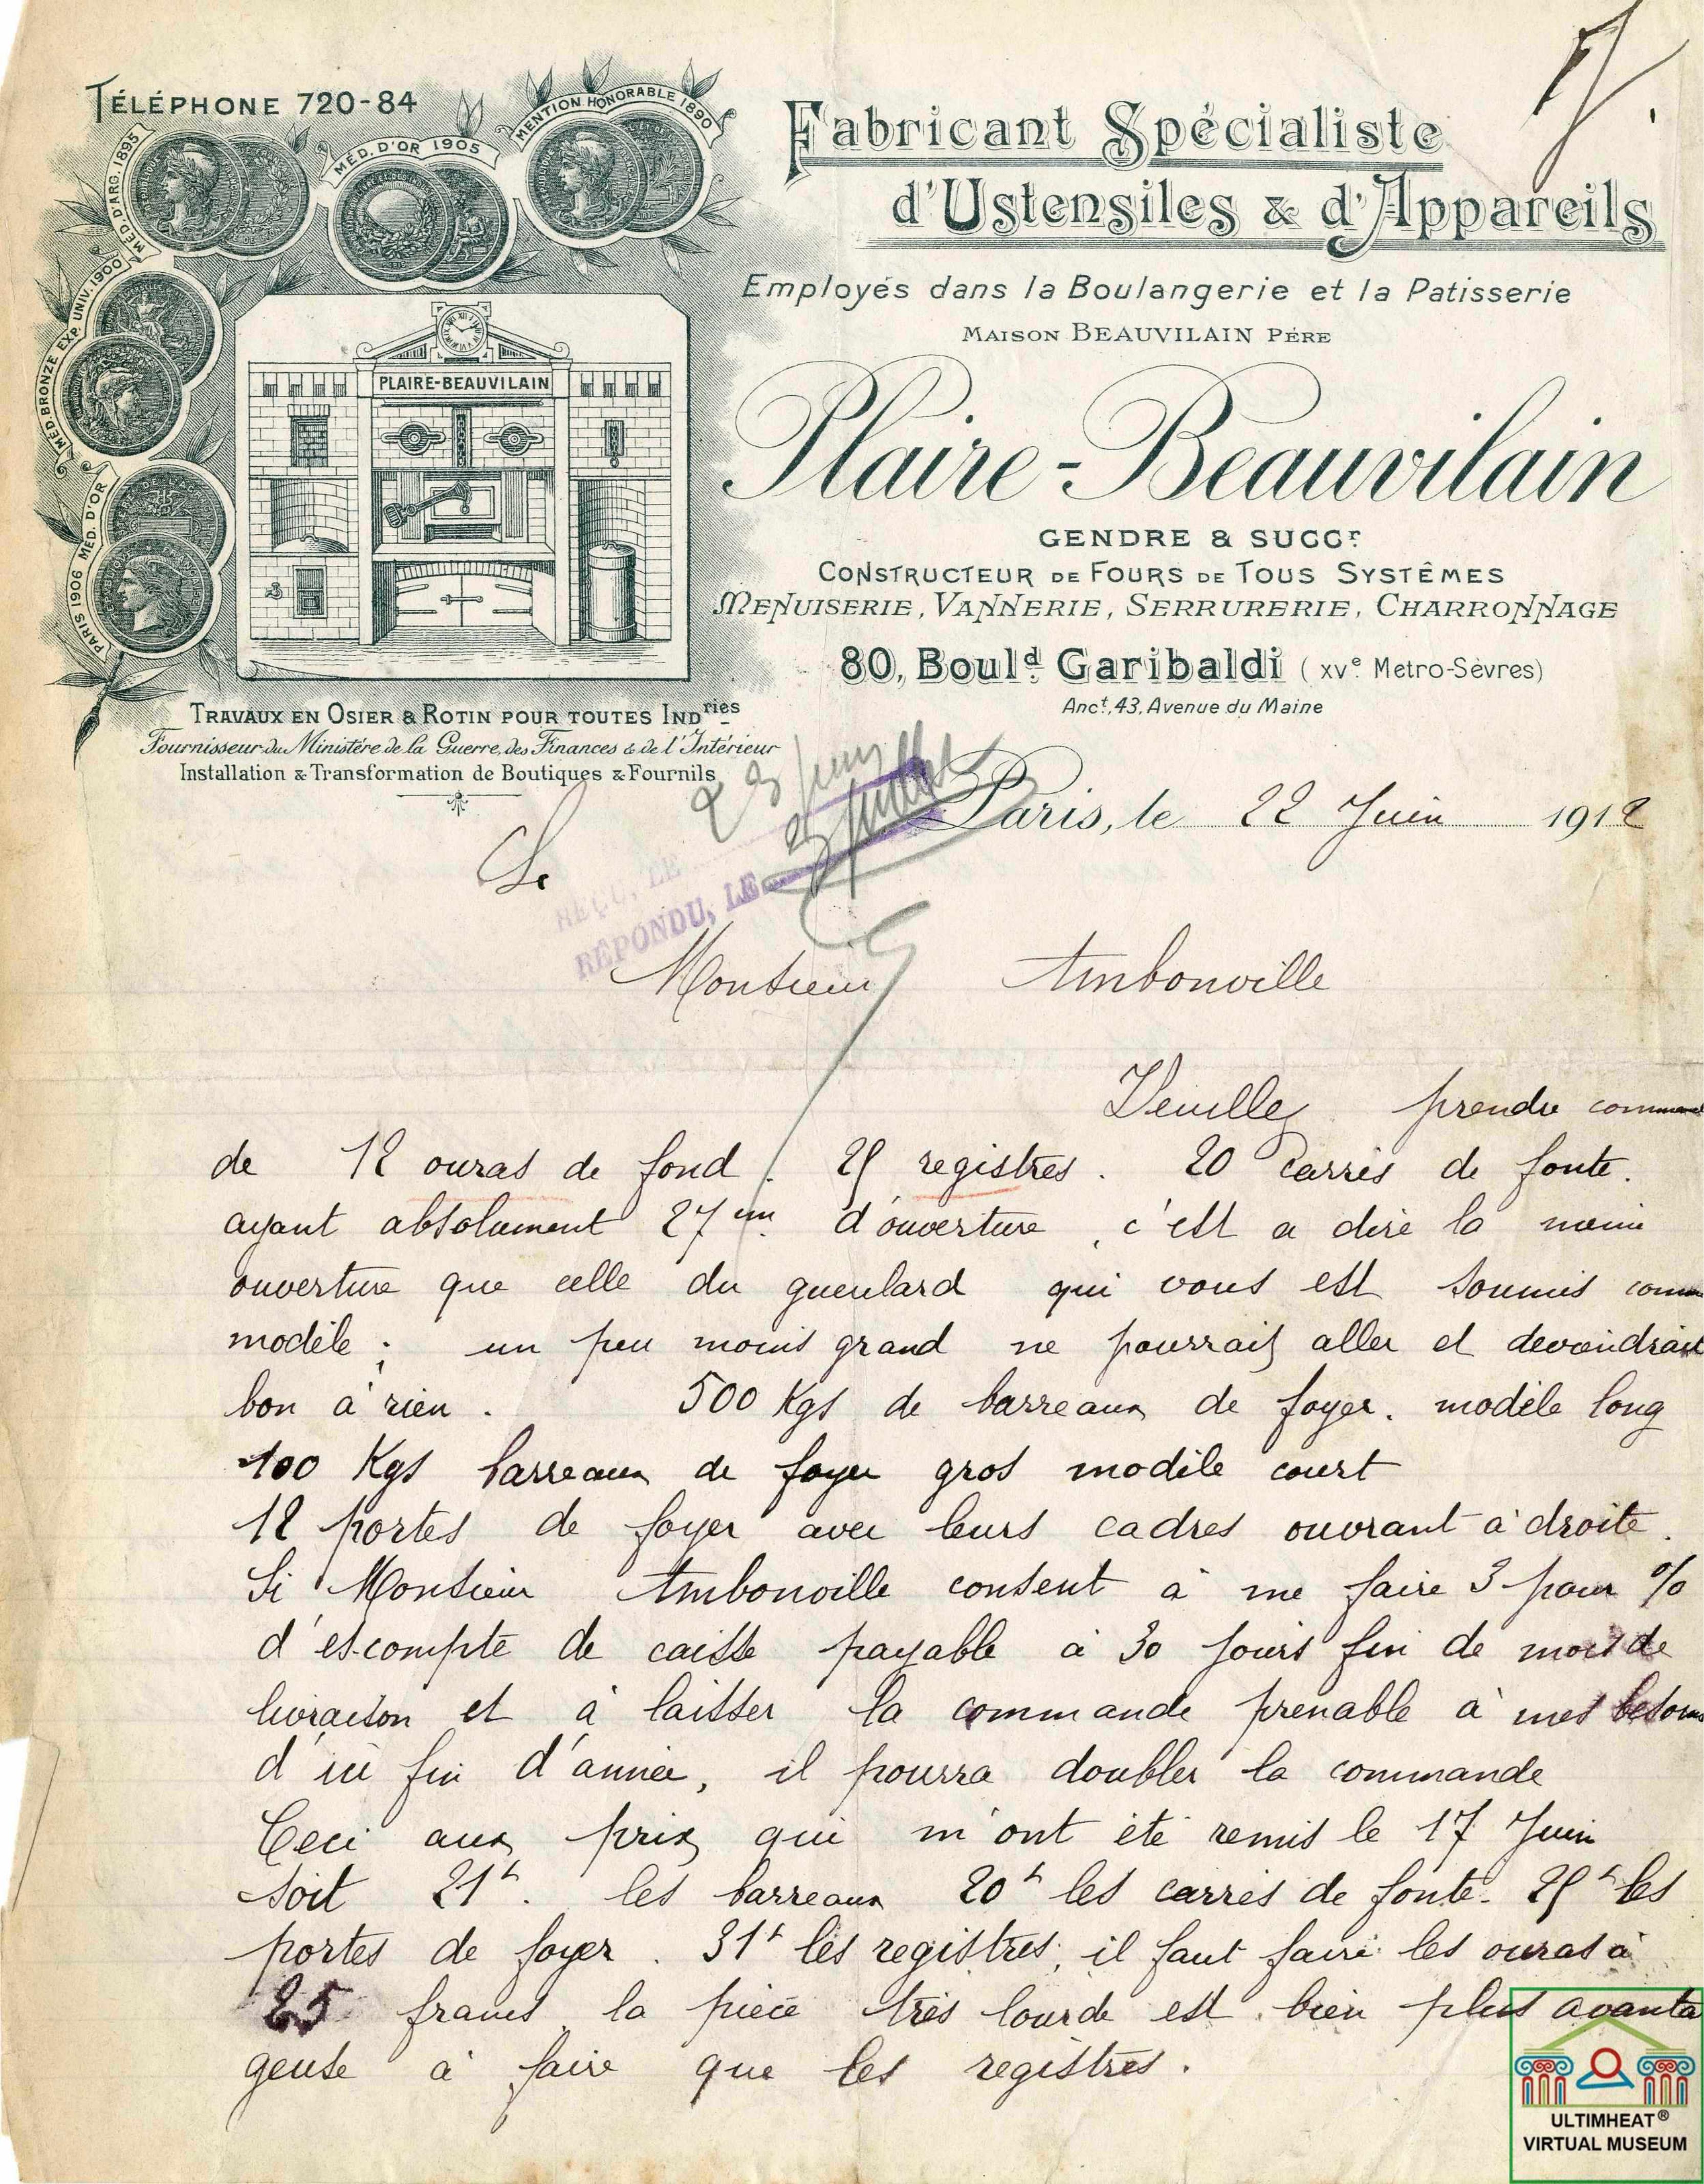 TÉLÉPHONE 720-84
MÉD. D'ARG. 1895
MÉD. D'OR 1905
MENTION HONORABLE 1890
MÉD. BRONZE EXP. UNIV. 1900
PARIS 1906 MÉD. D'OR
PLAIRE-BEAUVILAIN
Fabricant Spécialiste
d'Ustensiles & d'Appareils
Employés dans la Boulangerie et la Patisserie
MAISON BEAUVILAIN PÉRE
Plaire-Beauvilain
GENDRE & SUCCr
CONSTRUCTEUR DE FOURS DE TOUS SYSTÊMES
MENUISERIE, VANNERIE, SERRURERIE, CHARRONNAGE
80, Bould Garibaldi (XVe Metro-Sèvres)
Anct, 43, Avenue du Maine
TRAVAUX EN OSIER & ROTIN POUR TOUTES INDries
Fournisseur du Ministére de la Guerre, des Finances & de l'Intérieur
Installation & Transformation de Boutiques & Fournils
Paris, le 22 Juin 1912
REÇU, LE 23 juin
RÉPONDU, LE
Monsieur Ambonville
Veuillez prendre
de 12 ouras de fond. 25 registres. 20 carrés de fonte.
ayant absolument 27 cm. d'ouverture, c'est a dire la meme
ouverture que celle du gueulard qui vous est soumis comme
modèle; un peu moins grand ne pourrait aller et deviendrait
bon à rien. 500 Kgs de barreaux de foyer. modèle long
100 Kgs barreaux de foyer gros modèle court
12 portes de foyer avec leurs cadres ouvrant à droite.
Si Monsieur Ambonville consent à me faire 3 pour %
d'escompte de caisse payable à 30 jours fin de mois de
livraison et à laisser la commande prenable à mes besoins
d'ici fin d'année, il pourra doubler la commande
Ceci aux prix qui m'ont été remis le 17 Juin
soit 21f. les barreaux 20f les carrés de fonte. 25f les
portes de foyer. 31f les registres, il faut faire les ouras à
25 francs, la pièce très lourde est bien plus avanta
geuse à faire que les registres.
ULTIMHEAT®
VIRTUAL MUSEUM